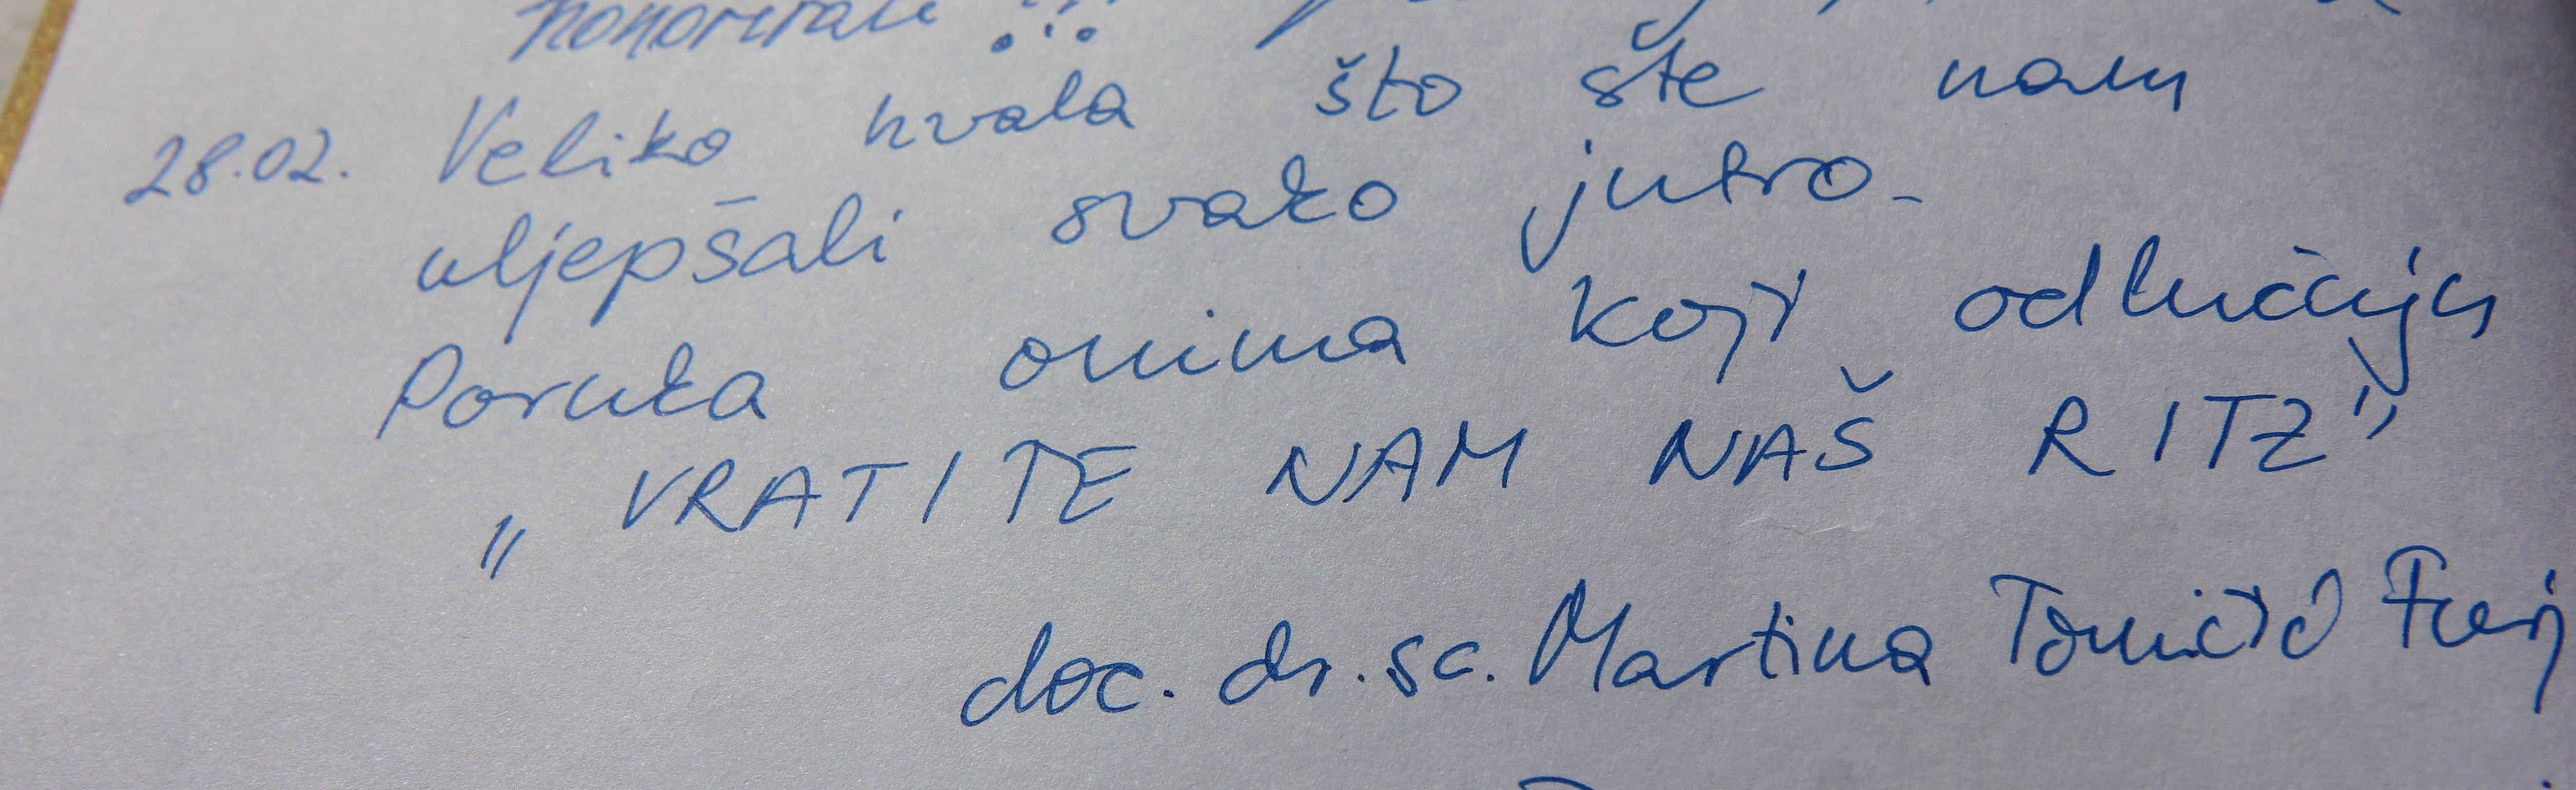 honorirali !!!
28.02. Veliko hvala što ste nam
uljepšali svako jutro.
Poruka onima koji odlučuju
„VRATITE NAM NAŠ RITZ"
doc. dr. sc. Martina Tomičić